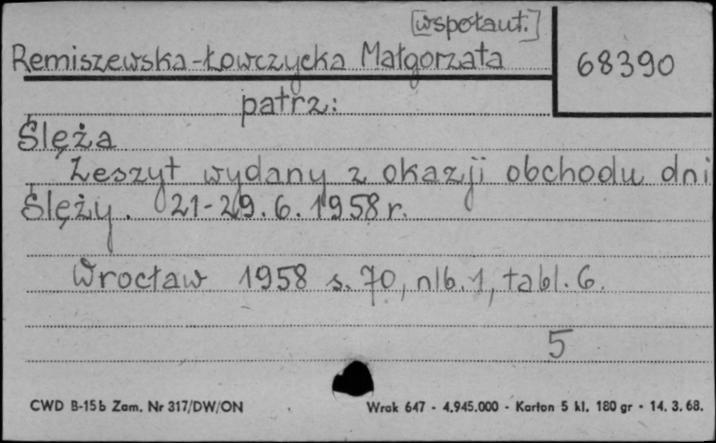 [współaut.]
Remiszewska-Łowczycka Małgorzata
68390
patrz:
Ślęża
Zeszyt wydany z okazji obchodu dni
Ślęży. 21-29.6.1958 r.
Wrocław 1958 s. 70, nlb. 1, tabl. 6.
5
CWD B-15b Zam. Nr 317/DW/ON
Wrak 647 - 4.945.000 - Karton 5 kl. 180 gr - 14. 3. 68.